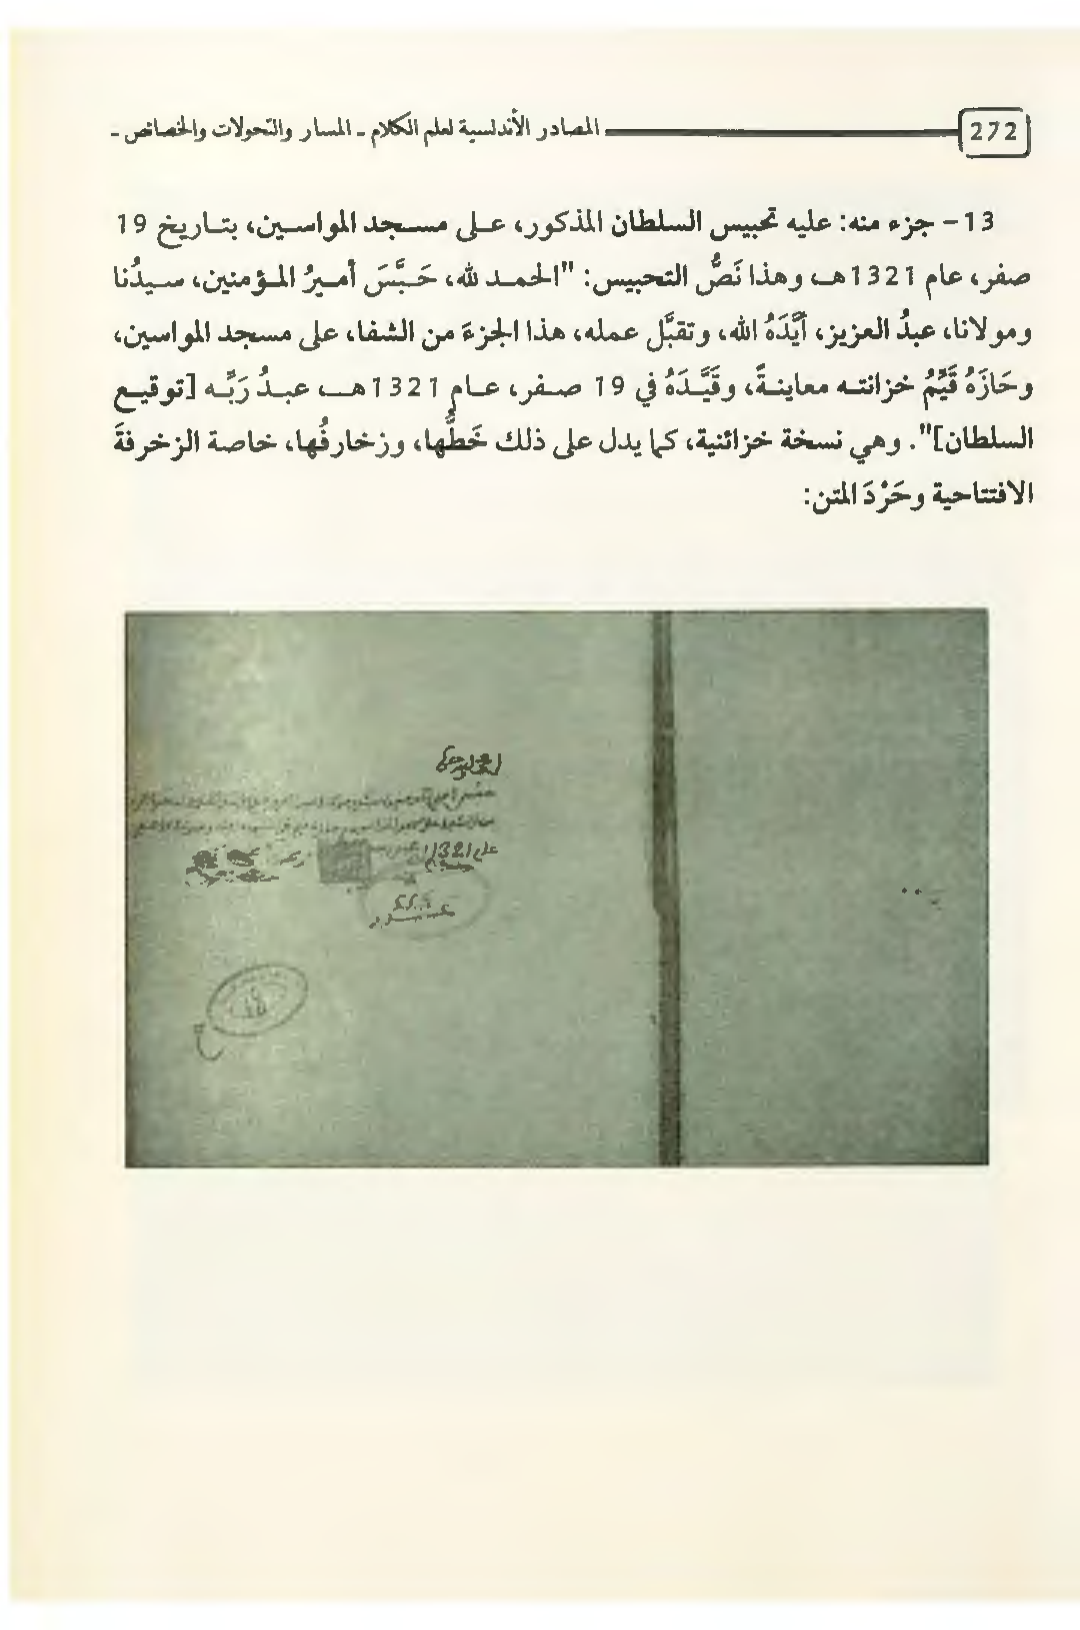 272
المصادر الأندلسية لعلم الكلام ـ المسار والتحولات والخصائص ـ
13- جزء منه: عليه تحبيس السلطان المذكور، على مسجد المواسين، بتاريخ 19
صفر، عام 1321هـ، وهذا نَصُّ التحبيس: "الحمد لله، حَبَّسَ أميرُ المؤمنين، سيدُنا
ومولانا، عبدُ العزيز، أَيَّدَهُ الله، وتقبَّل عمله، هذا الجزءَ من الشفا، على مسجد المواسين،
وحَازَهُ قَيِّمُ خزانته معاينةً، وقَيَّدَهُ في 19 صفر، عام 1321هـ، عبدُ رَبِّه [توقيع
السلطان]". وهي نسخة خزائنية، كما يدل على ذلك خَطُّها، وزخارفُها، خاصة الزخرفةَ
الافتتاحية وحَرْدَ المتن:
عام 1321